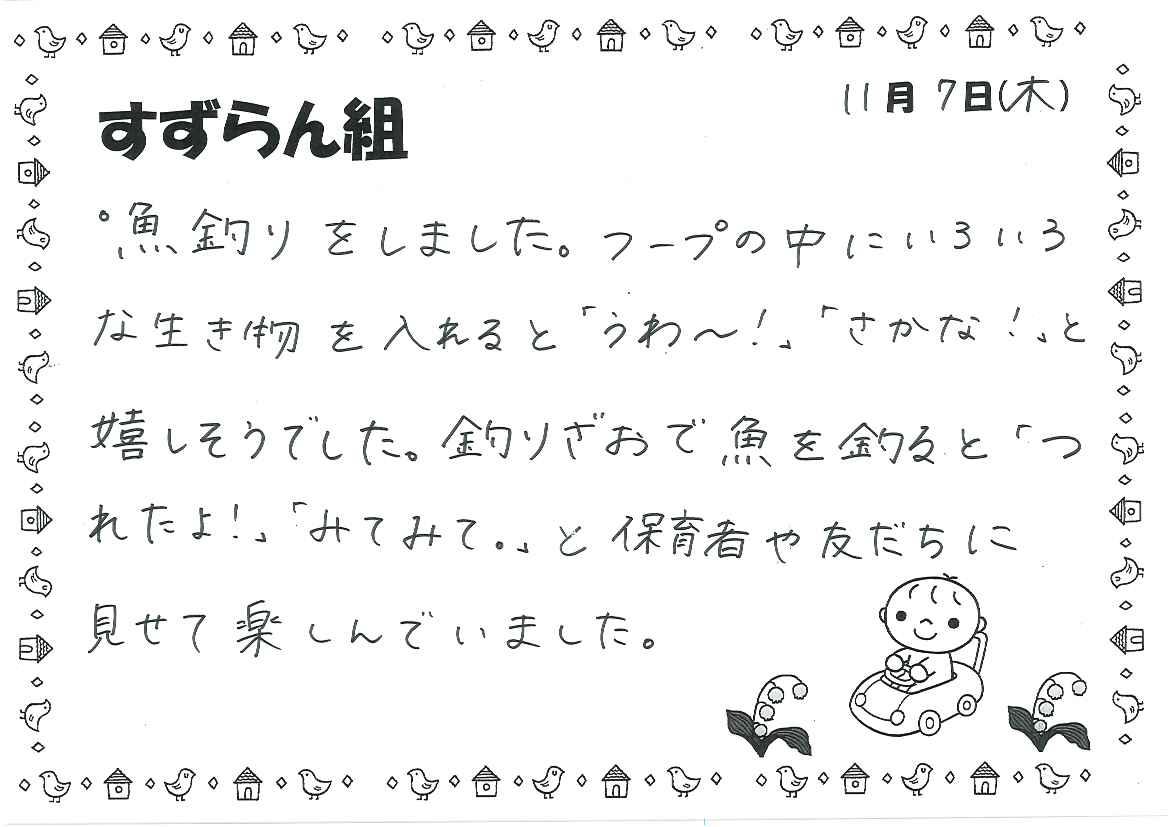 11月7日(木)
すずらん組
°魚釣りをしました。フープの中にいろいろ
な生き物を入れると「うわ～!」「さかな!」と
嬉しそうでした。釣りざおで魚を釣ると「つ
れたよ!」「みてみて。」と保育者や友だちに
見せて楽しんでいました。